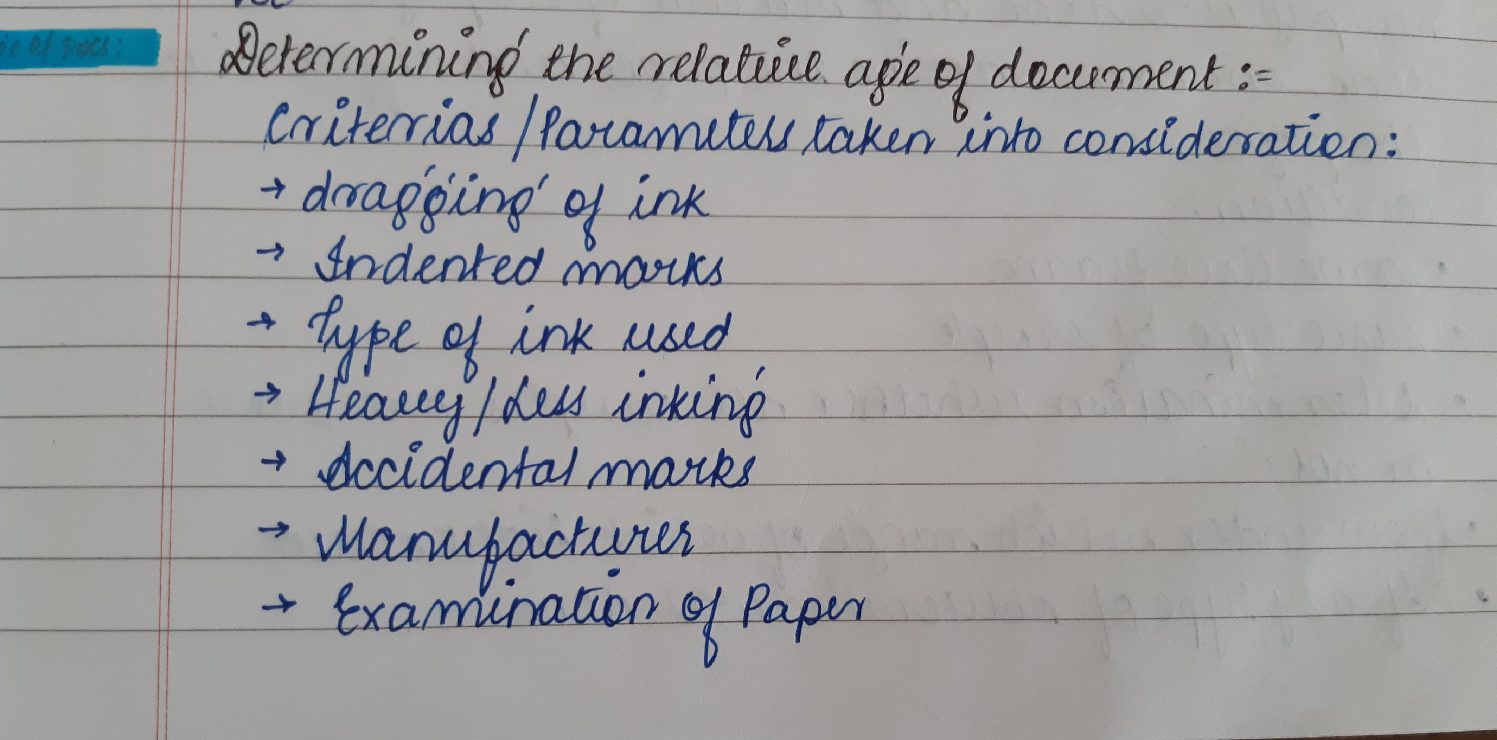 of Docs:
Determining the relative age of document :=
Criterias/Parameters taken into consideration:
→ dragging of ink
→ Indented marks
→ Type of ink used
→ Heavy/Less inking
→ Accidental marks
→ Manufacturer
→ Examination of Paper